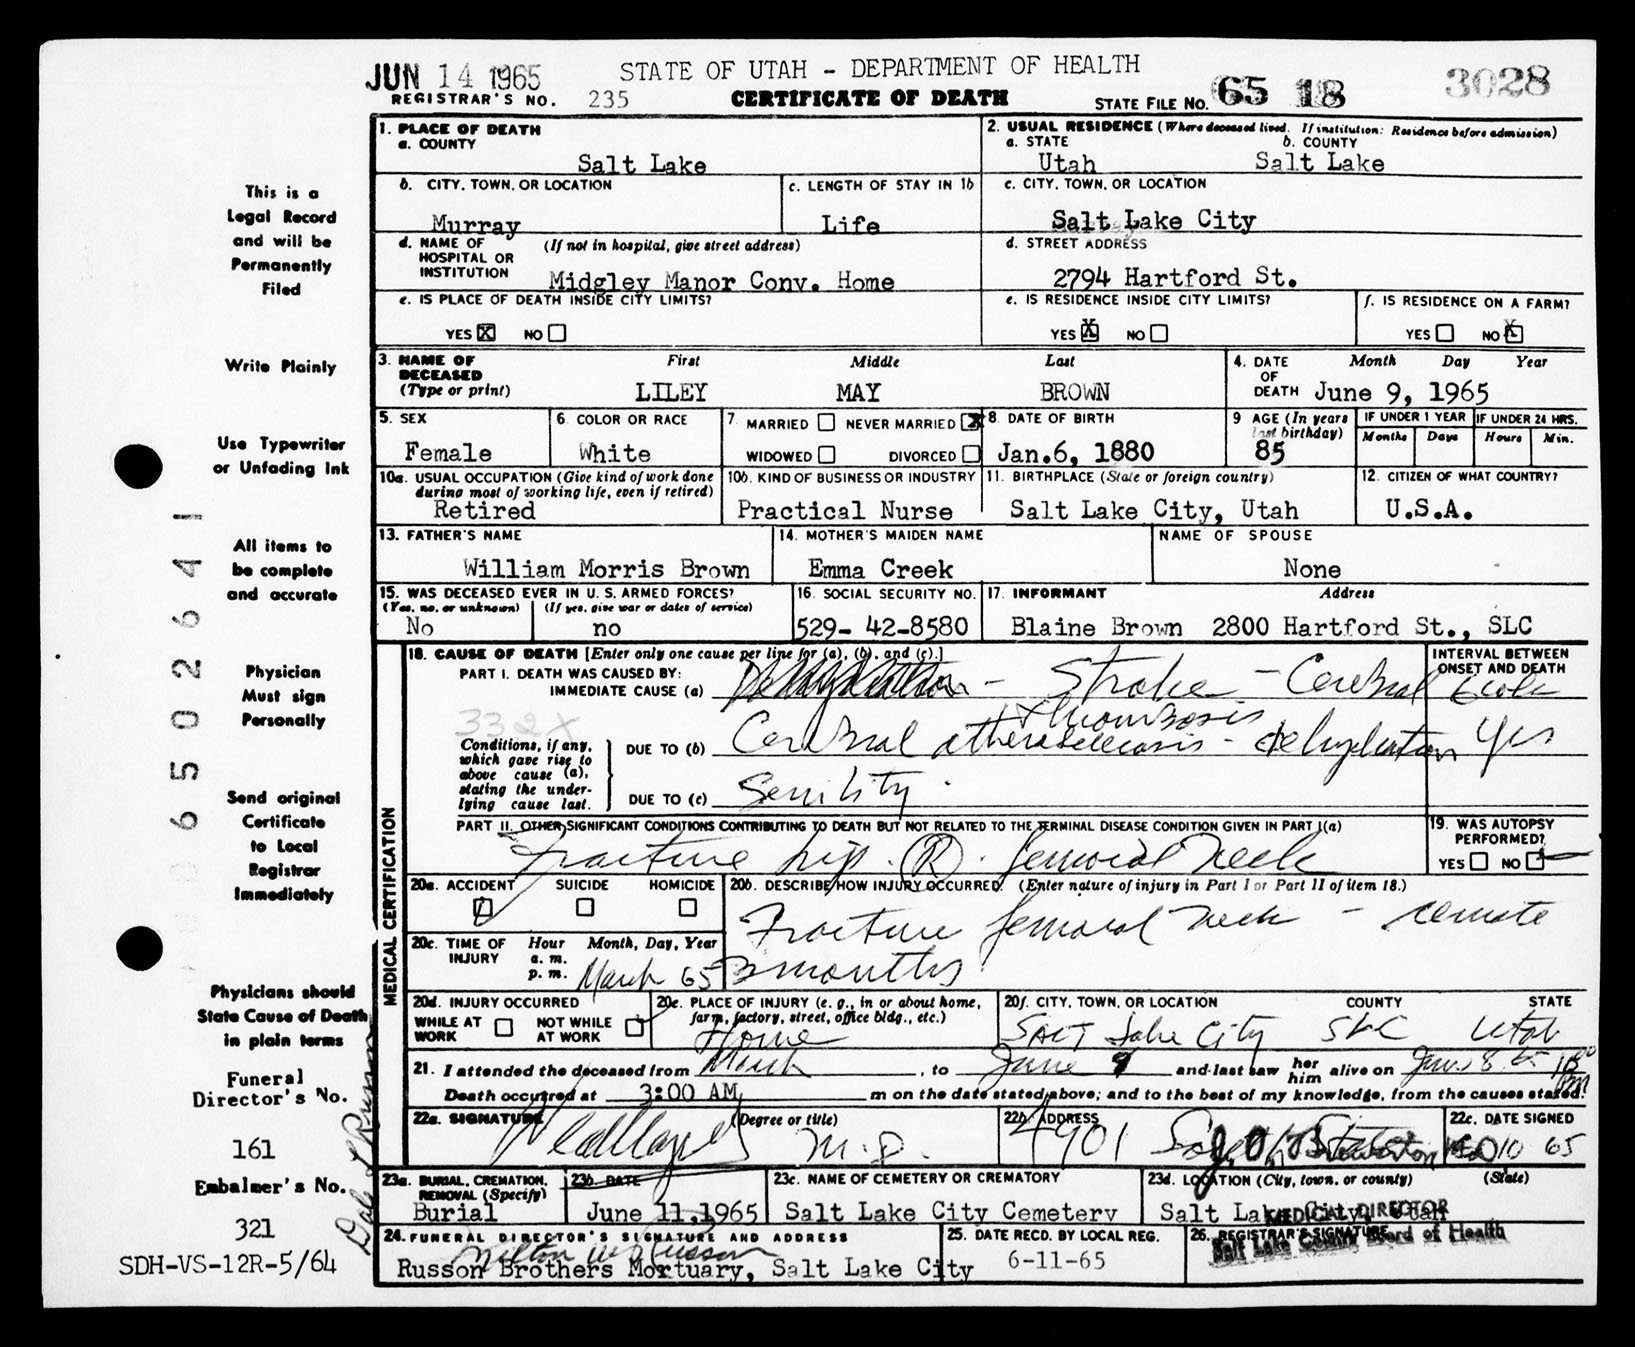 JUN 14 1965 STATE OF UTAH - DEPARTMENT OF HEALTH
REGISTRAR'S NO. 235 CERTIFICATE OF DEATH STATE FILE NO. 65 18 3028
1. PLACE OF DEATH
a. COUNTY
Salt Lake
2. USUAL RESIDENCE (Where deceased lived. If institution: Residence before admission)
a. STATE b. COUNTY
Utah Salt Lake
b. CITY, TOWN, OR LOCATION
Murray
c. LENGTH OF STAY IN 1b
Life
c. CITY, TOWN, OR LOCATION
Salt Lake City
d. NAME OF (If not in hospital, give street address)
HOSPITAL OR
INSTITUTION Midgley Manor Conv. Home
d. STREET ADDRESS
2794 Hartford St.
e. IS PLACE OF DEATH INSIDE CITY LIMITS?
YES X NO
e. IS RESIDENCE INSIDE CITY LIMITS?
YES X NO
f. IS RESIDENCE ON A FARM?
YES NO X
3. NAME OF First Middle Last
DECEASED
(Type or print) LILEY MAY BROWN
4. DATE Month Day Year
OF
DEATH June 9, 1965
5. SEX
Female
6. COLOR OR RACE
White
7. MARRIED NEVER MARRIED X
WIDOWED DIVORCED
8. DATE OF BIRTH
Jan.6, 1880
9 AGE (In years
last birthday)
85
IF UNDER 1 YEAR IF UNDER 24 HRS.
Months Days Hours Min.
10a. USUAL OCCUPATION (Give kind of work done
during most of working life, even if retired)
Retired
10b. KIND OF BUSINESS OR INDUSTRY
Practical Nurse
11. BIRTHPLACE (State or foreign country)
Salt Lake City, Utah
12. CITIZEN OF WHAT COUNTRY?
U.S.A.
13. FATHER'S NAME
William Morris Brown
14. MOTHER'S MAIDEN NAME
Emma Creek
NAME OF SPOUSE
None
15. WAS DECEASED EVER IN U. S. ARMED FORCES?
(Yes, no, or unknown) (If yes, give war or dates of service)
No no
16. SOCIAL SECURITY NO.
529- 42-8580
17. INFORMANT Address
Blaine Brown 2800 Hartford St., SLC
MEDICAL CERTIFICATION
18. CAUSE OF DEATH [Enter only one cause per line for (a), (b), and (c).]
INTERVAL BETWEEN
ONSET AND DEATH
PART I. DEATH WAS CAUSED BY:
IMMEDIATE CAUSE (a) Dehydration - Stroke - Cerebral
thrombosis
332X
Conditions, if any,
which gave rise to
above cause (a),
stating the under-
lying cause last.
DUE TO (b) Cerebral atherosclerosis - dehydration yrs
DUE TO (c) Senility
PART II. OTHER SIGNIFICANT CONDITIONS CONTRIBUTING TO DEATH BUT NOT RELATED TO THE TERMINAL DISEASE CONDITION GIVEN IN PART I(a)
Fracture hip. (R). femoral neck
19. WAS AUTOPSY
PERFORMED?
YES NO
20a. ACCIDENT SUICIDE HOMICIDE
20b. DESCRIBE HOW INJURY OCCURRED. (Enter nature of injury in Part I or Part II of item 18.)
Fracture femoral neck - remote
3 months
20c. TIME OF INJURY Hour Month, Day, Year
a. m.
p. m. March 65
20d. INJURY OCCURRED
WHILE AT WORK NOT WHILE AT WORK
20e. PLACE OF INJURY (e. g., in or about home,
farm, factory, street, office bldg., etc.)
Home
20f. CITY, TOWN, OR LOCATION COUNTY STATE
Salt Lake City SLC Utah
21. I attended the deceased from March, to June 9 and last saw her him alive on June 8 65
Death occurred at 3:00 AM m on the date stated above; and to the best of my knowledge, from the causes stated.
22a. SIGNATURE (Degree or title)
M.D.
22b. ADDRESS
4901
22c. DATE SIGNED
10 65
23a. BURIAL, CREMATION,
REMOVAL (Specify)
Burial
23b. DATE
June 11, 1965
23c. NAME OF CEMETERY OR CREMATORY
Salt Lake City Cemetery
23d. LOCATION (City, town, or county) (State)
Salt Lake City, Utah
MEDICAL DIRECTOR
24. FUNERAL DIRECTOR'S SIGNATURE AND ADDRESS
Russon Brothers Mortuary, Salt Lake City
25. DATE RECD. BY LOCAL REG.
6-11-65
26. REGISTRAR'S SIGNATURE
Salt Lake County Board of Health
This is a
Legal Record
and will be
Permanently
Filed
Write Plainly
Use Typewriter
or Unfading Ink
All items to
be complete
and accurate
Physician
Must sign
Personally
Send original
Certificate
to Local
Registrar
Immediately
Physicians should
State Cause of Death
in plain terms
Funeral
Director's No.
161
Embalmer's No.
321
SDH-VS-12R-5/64
6502641